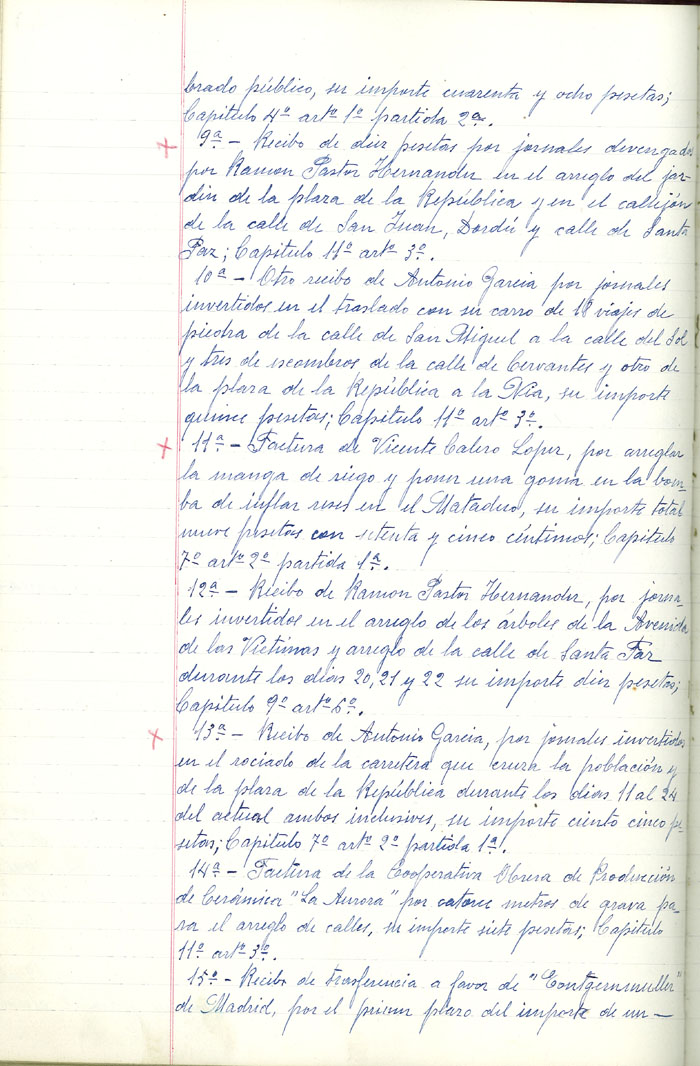 brado público, su importe cuarenta y ocho pesetas;
Capítulo 4º artº 1º partida 2ª.
9ª.- Recibo de diez pesetas por jornales devengados
por Ramon Pastor Hernandez en el arreglo del jar-
din de la plaza de la República y en el callejón
de la calle de San Juan, Dordú y calle de Santa
Faz; Capítulo 11º artº 3º.
10ª - Otro recibo de Antonio Garcia por jornales
invertidos en el traslado con su carro de 18 viajes de
piedra de la calle de San Miguel a la calle del Sol
y tres de escombros de la calle de Cervantes y otro de
la plaza de la República a la Nía, su importe
quince pesetas; Capítulo 11º artº 3º.
11ª - Factura de Vicente Calero Lopez, por arreglar
la manga de riego y poner una goma en la bom-
ba de inflar reses en el Matadero, su importe total
nueve pesetas con setenta y cinco céntimos; Capítulo
7º artº 2º partida 1ª.
12ª - Recibo de Ramon Pastor Hernandez, por jorna-
les invertidos en el arreglo de los árboles de la Avenida
de las Víctimas y arreglo de la calle de Santa Faz
durante los dias 20, 21 y 22 su importe diez pesetas;
Capítulo 9º artº 6º.
13ª - Recibo de Antonio Garcia, por jornales invertidos
en el rociado de la carretera que cruza la población y
de la plaza de la República durante los dias 11 al 24
del actual ambos inclusives, su importe ciento cinco pe-
setas; Capítulo 7º artº 2º partida 1ª.
14ª - Factura de la Cooperativa Obrera de Producción
de Cerámica "La Aurora" por catorce metros de grava pa-
ra el arreglo de calles, su importe siete pesetas; Capítulo
11º artº 3º.
15ª - Recibo de trasferencia a favor de
de Madrid, por el primer plazo del importe de un -